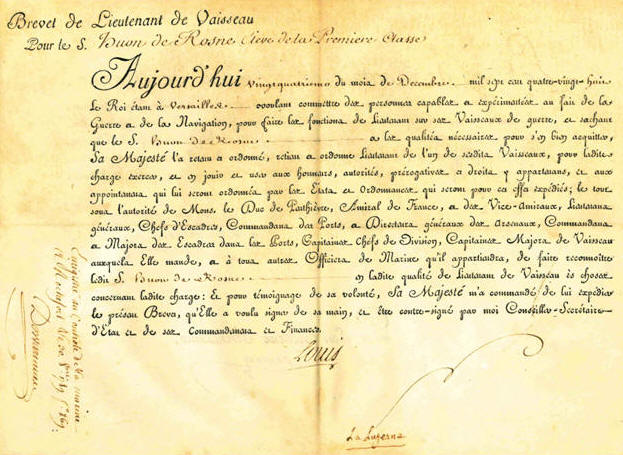 Brevet de Lieutenant de Vaisseau
Pour le S. Huon de Rosne Eleve de la Premiere Classe
Aujourd'hui vingtquatrieme du mois de Decembre mil sept cent quatre-vingt-huit
Le Roi étant à Versailles voulant commettre des personnes capables et expérimentées au fait de la
Guerre et de la Navigation, pour faire les fonctions de Lieutenant sur ses Vaisseaux de guerre, et sachant
que le S. Huon de Rosne a les qualités nécessaires pour s'en bien acquitter,
Sa Majesté l'a retenu et ordonné, retient et ordonne Lieutenant de l'un de sesdits Vaisseaux, pour ladite
charge exercer, et en jouir et user aux honneurs, autorités, prérogatives et droits y appartenans, et aux
appointemens qui lui seront ordonnés par les Etats et Ordonnances qui seront pour cet effet expédiés; le tout
sous l'autorité de Mons. le Duc de Penthièvre, Amiral de France, et des Vice-Amiraux, Lieutenans
généraux, Chefs d'Escadres, Commandans des Ports, et Directeurs généraux des Arsenaux, Commandans
et Majors des Escadres dans les Ports, Capitaines Chefs de Division, Capitaines Majors de Vaisseau
auxquels Elle mande, et à tous autres Officiers de Marine qu'il appartiendra, de faire reconnoître
ledit S. Huon de Rosne en ladite qualité de Lieutenant de Vaisseau ès choses
concernant ladite charge: Et pour témoignage de sa volonté, Sa Majesté m'a commandé de lui expédier
le présent Brevet, qu'Elle a voulu signer de sa main, et être contre-signé par moi Conseiller-Secrétaire
d'Etat et de ses Commandemens et Finances.
Louis
La Luzerne
Enregistré au Contrôle de la marine
à Rochefort le